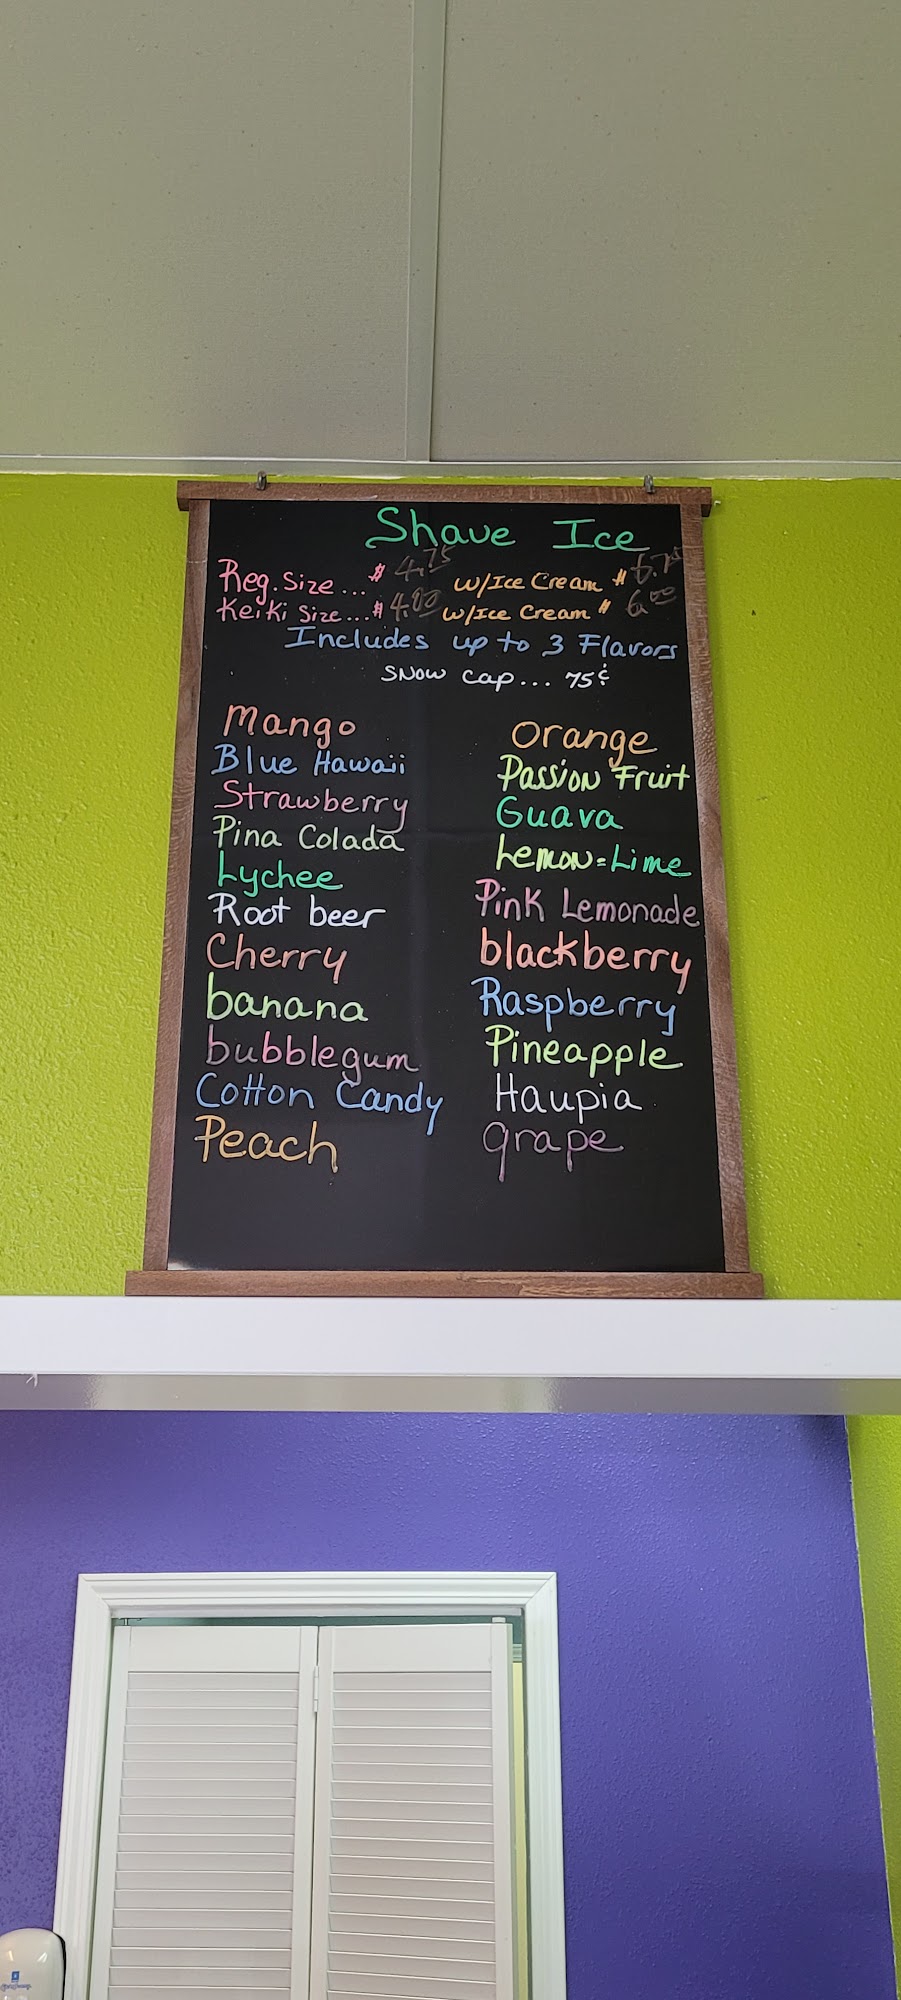 Shave Ice
Reg. Size... $ 4.75 w/Ice Cream $ 6.75
Keiki Size... $ 4.00 w/Ice Cream $ 6.00
Includes up to 3 Flavors
Snow cap... 75¢
Mango
Blue Hawaii
Strawberry
Pina Colada
Lychee
Root beer
Cherry
banana
bubblegum
Cotton Candy
Peach
Orange
Passion Fruit
Guava
Lemon=Lime
Pink Lemonade
blackberry
Raspberry
Pineapple
Haupia
grape